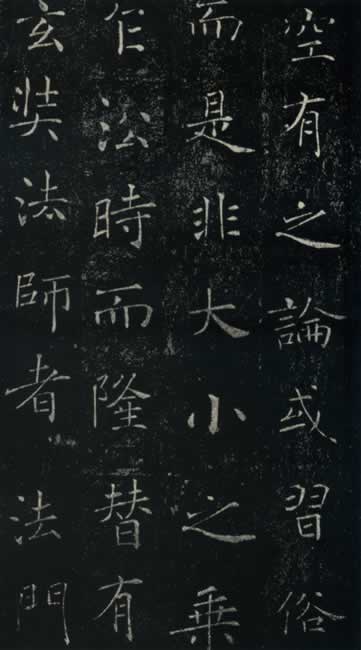 空有之論或習俗
而是非大小之乗
乍㳂時而隆替有
玄奘法師者法門